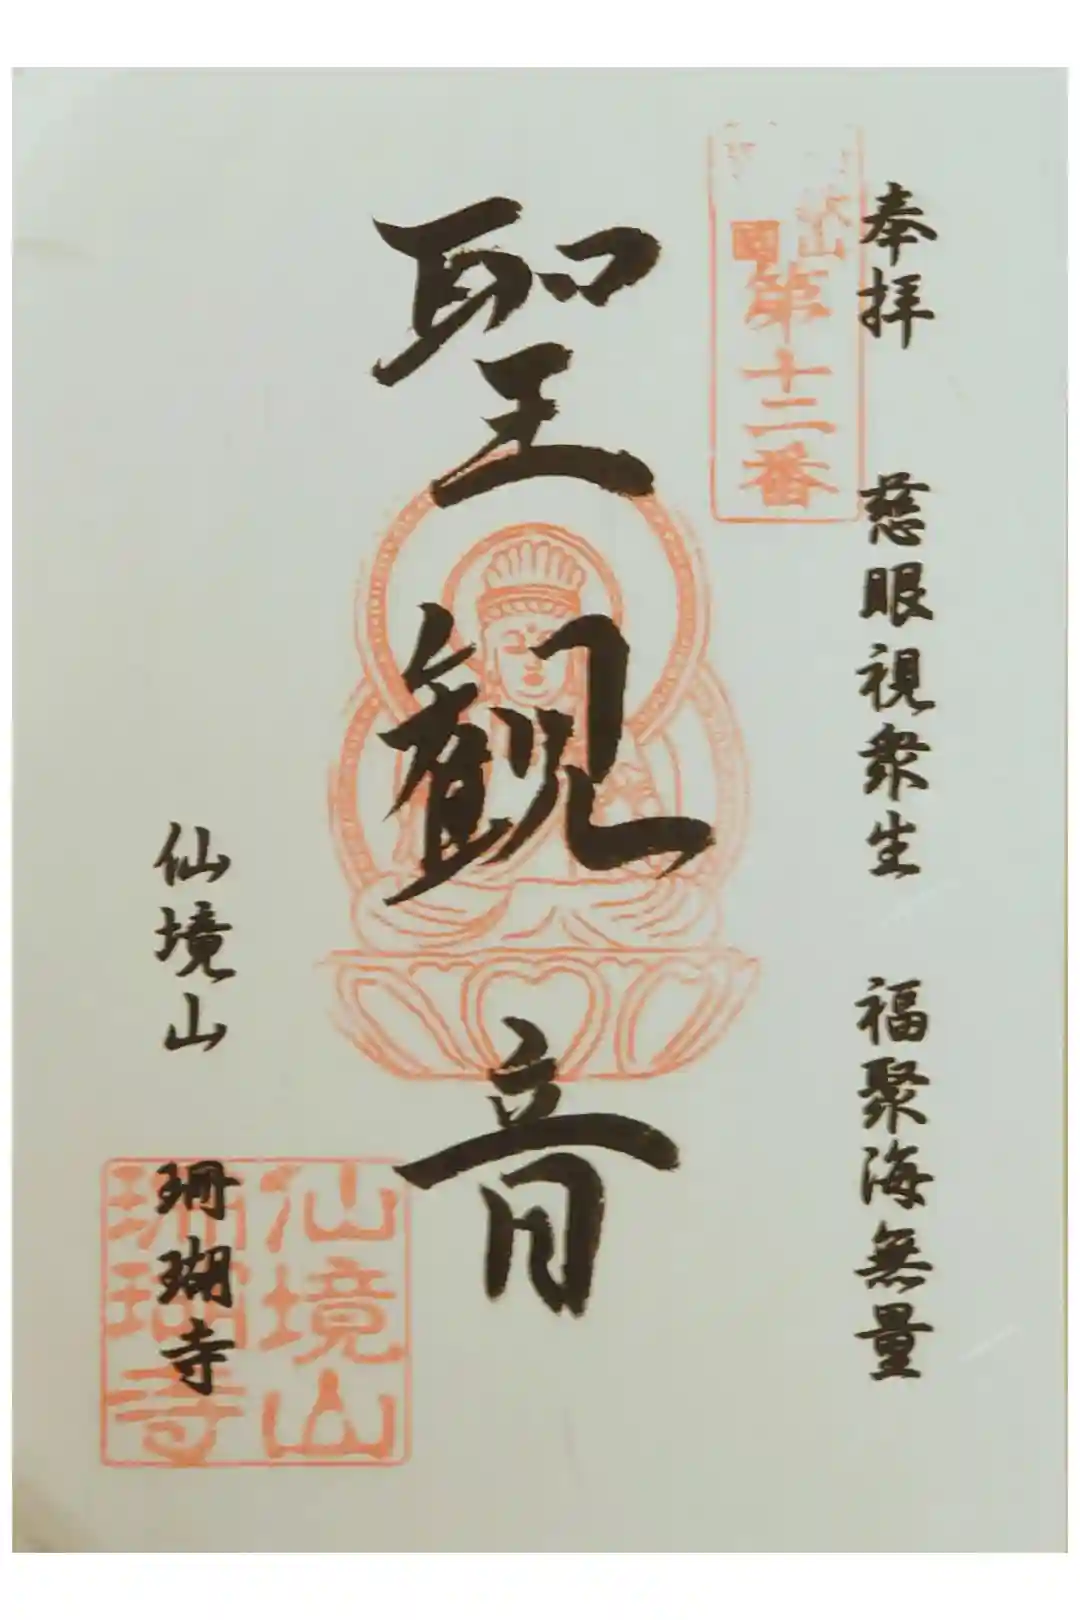 奉拝　慈眼視衆生　福聚海無量
第十二番
聖観音
仙境山　珊瑚寺
仙境山
珊瑚寺